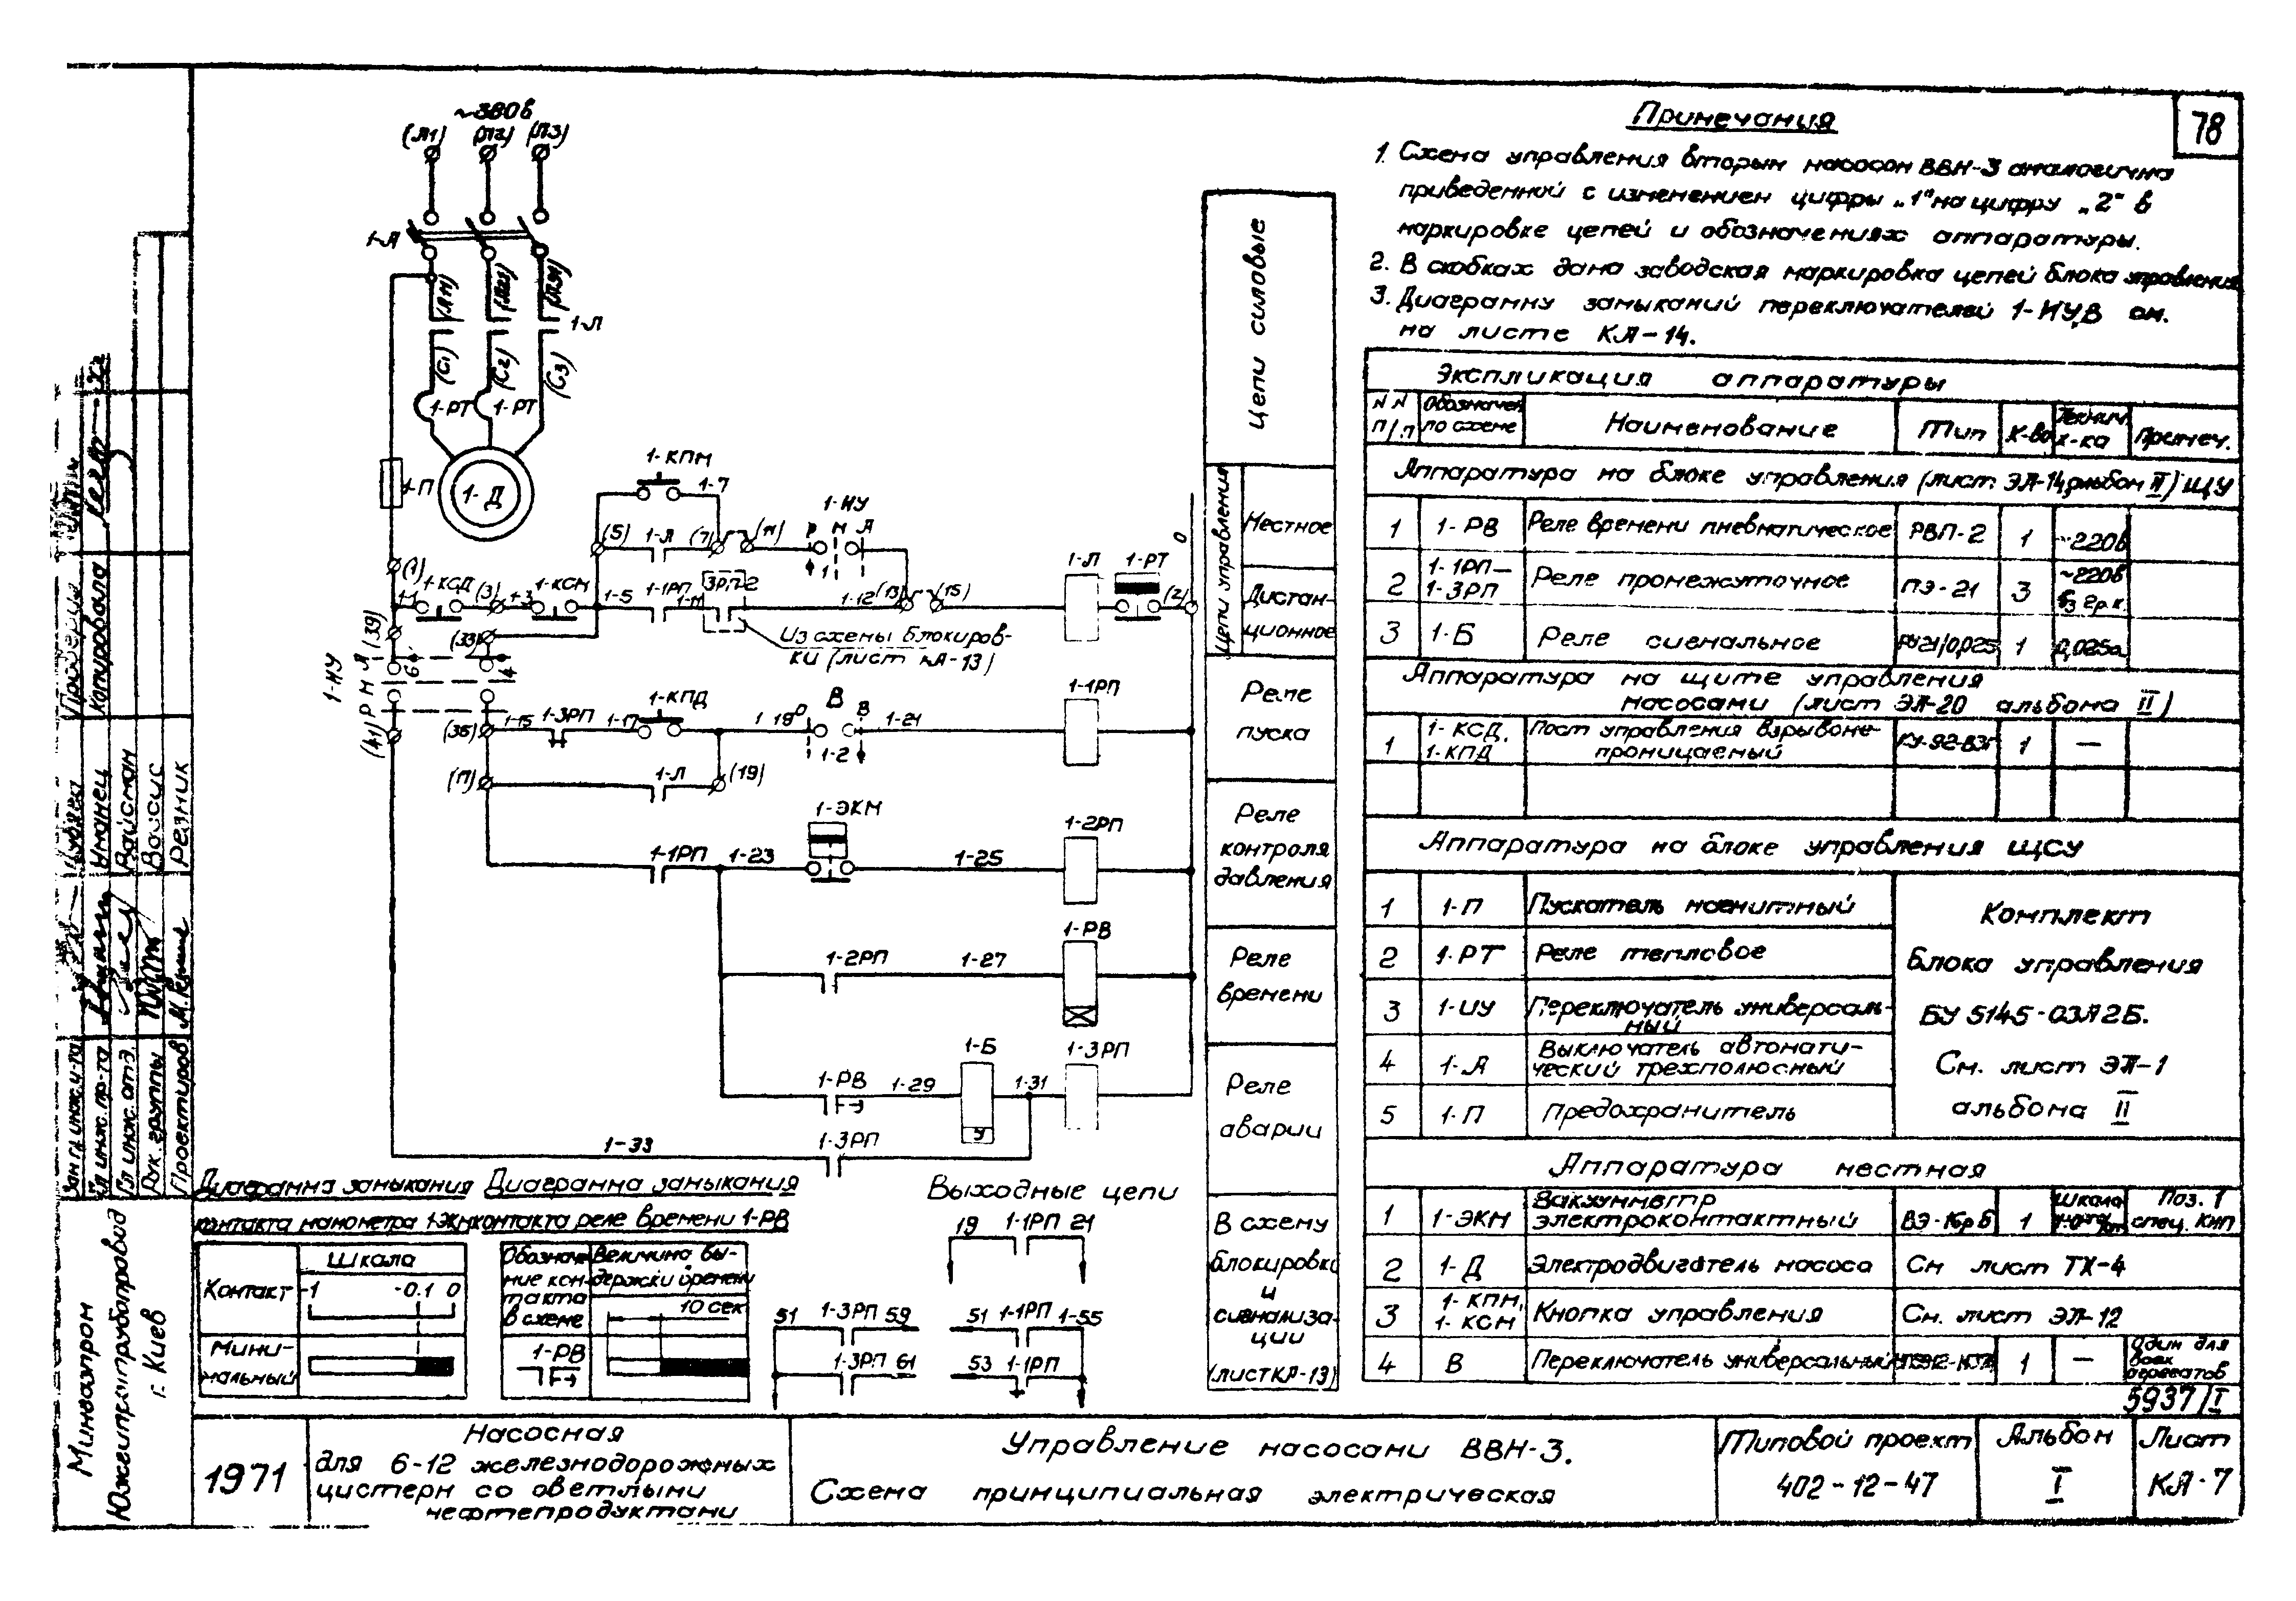 78
Примечания
1. Схема управления вторым насосом ВВН-3 аналогична
приведенной с изменением цифры „1" на цифру „2" в
маркировке цепей и обозначениях аппаратуры.
2. В скобках дана заводская маркировка цепей блока управления
3. Диаграмму замыканий переключателей 1-ИУ,В см.
на листе КА-14.
Экспликация аппаратуры
NN п/п
Обозначен по схеме
Наименование
Тип
К-во
Технич. х-ка
Примеч.
Аппаратура на блоке управления (лист ЭЛ-14 альбом II) ЩУ
1 1-РВ Реле времени пневматическое РВП-2 1 ~220в
2 1-1РП–1-3РП Реле промежуточное ПЭ-21 3 ~220в
3 1-Б Реле сигнальное РУ21/0,025 1 0,025а
Аппаратура на щите управления
насосами (лист ЭЛ-20 альбома II)
1 1-КСД, 1-КПД Пост управления взрывоне-
проницаемый КУ-92-ВЗГ 1 —
Аппаратура на блоке управления ЩСУ
1 1-П Пускатель магнитный
2 1-РТ Реле тепловое
3 1-ИУ Переключатель универсаль-
ный
4 1-А Выключатель автомати-
ческий трехполюсный
5 1-П Предохранитель
Комплект
блока управления
БУ 5145-03А2Б.
См. лист ЭЛ-1
альбома II
Аппаратура местная
1 1-ЭКМ Вакуумметр
электроконтактный ВЭ-16рБ 1 Шкала Поз. 1
спец. КИП
2 1-Д Электродвигатель насоса См лист ТХ-4
3 1-КПМ, 1-КСМ Кнопка управления См. лист ЭЛ-12
4 В Переключатель универсальный 1 — Один для
всех
агрегатов
5937/I
~380в
(Л1) (Л2) (Л3)
1-А
(Л11) (Л21) (Л31)
1-Л
(С1) (С2) (С3)
1-РТ 1-РТ
1-П
1-Д
1-КПМ
1-7
1-ИУ
(5) 1-Л (7) (11) Р М А
1
1-Л 1-РТ 0
(1)
1-1 1-КСД (3) 1-3 1-КСМ 1-5 1-1РП 1-11 3РП-2 1-12 (13) (15) (2)
Из схемы блокиров-
ки (лист КА-13)
(39) (33)
1-ИУ
Р М А
6 4
(41) (35) 1-15 1-3РП 1-17 1-КПД 1-19 Р В В 1-21 1-1РП
1-2
(17) 1-Л (19)
1-ЭКМ
1-1РП 1-23 1-25 1-2РП
1-2РП 1-27 1-РВ
1-РВ 1-29 1-Б 1-31 1-3РП
У
1-33 1-3РП
Цепи силовые
Цепи управления
Местное
Дистан-
ционное
Реле
пуска
Реле
контроля
давления
Реле
времени
Реле
аварии
В схему
блокировки
и
сигнализа-
ции
(лист КА-13)
Диаграмма замыкания
контакта манометра 1-ЭКМ
Контакт
Шкала
-1 -0.1 0
Мини-
мальный
Диаграмма замыкания
контакта реле времени 1-РВ
Обозначе-
ние кон-
такта
в схеме
Величина вы-
держки времени
10 сек
1-РВ
Выходные цепи
19 1-1РП 21
51 1-3РП 59
51 1-1РП 1-55
1-3РП 61
53 1-1РП
1971
Насосная
для 6-12 железнодорожных
цистерн со светлыми
нефтепродуктами
Управление насосами ВВН-3.
Схема принципиальная электрическая
Типовой проект
402-12-47
Альбом
I
Лист
КА-7
Миннефтепром
Южгипротрубопровод
г. Киев
Зам гл инж. и-та
Гл инж. пр-та
Гл инж. отд.
Рук. группы
Проектиров
Уманец
Вайсман
Вассис
Резник
Проверил
Копировала